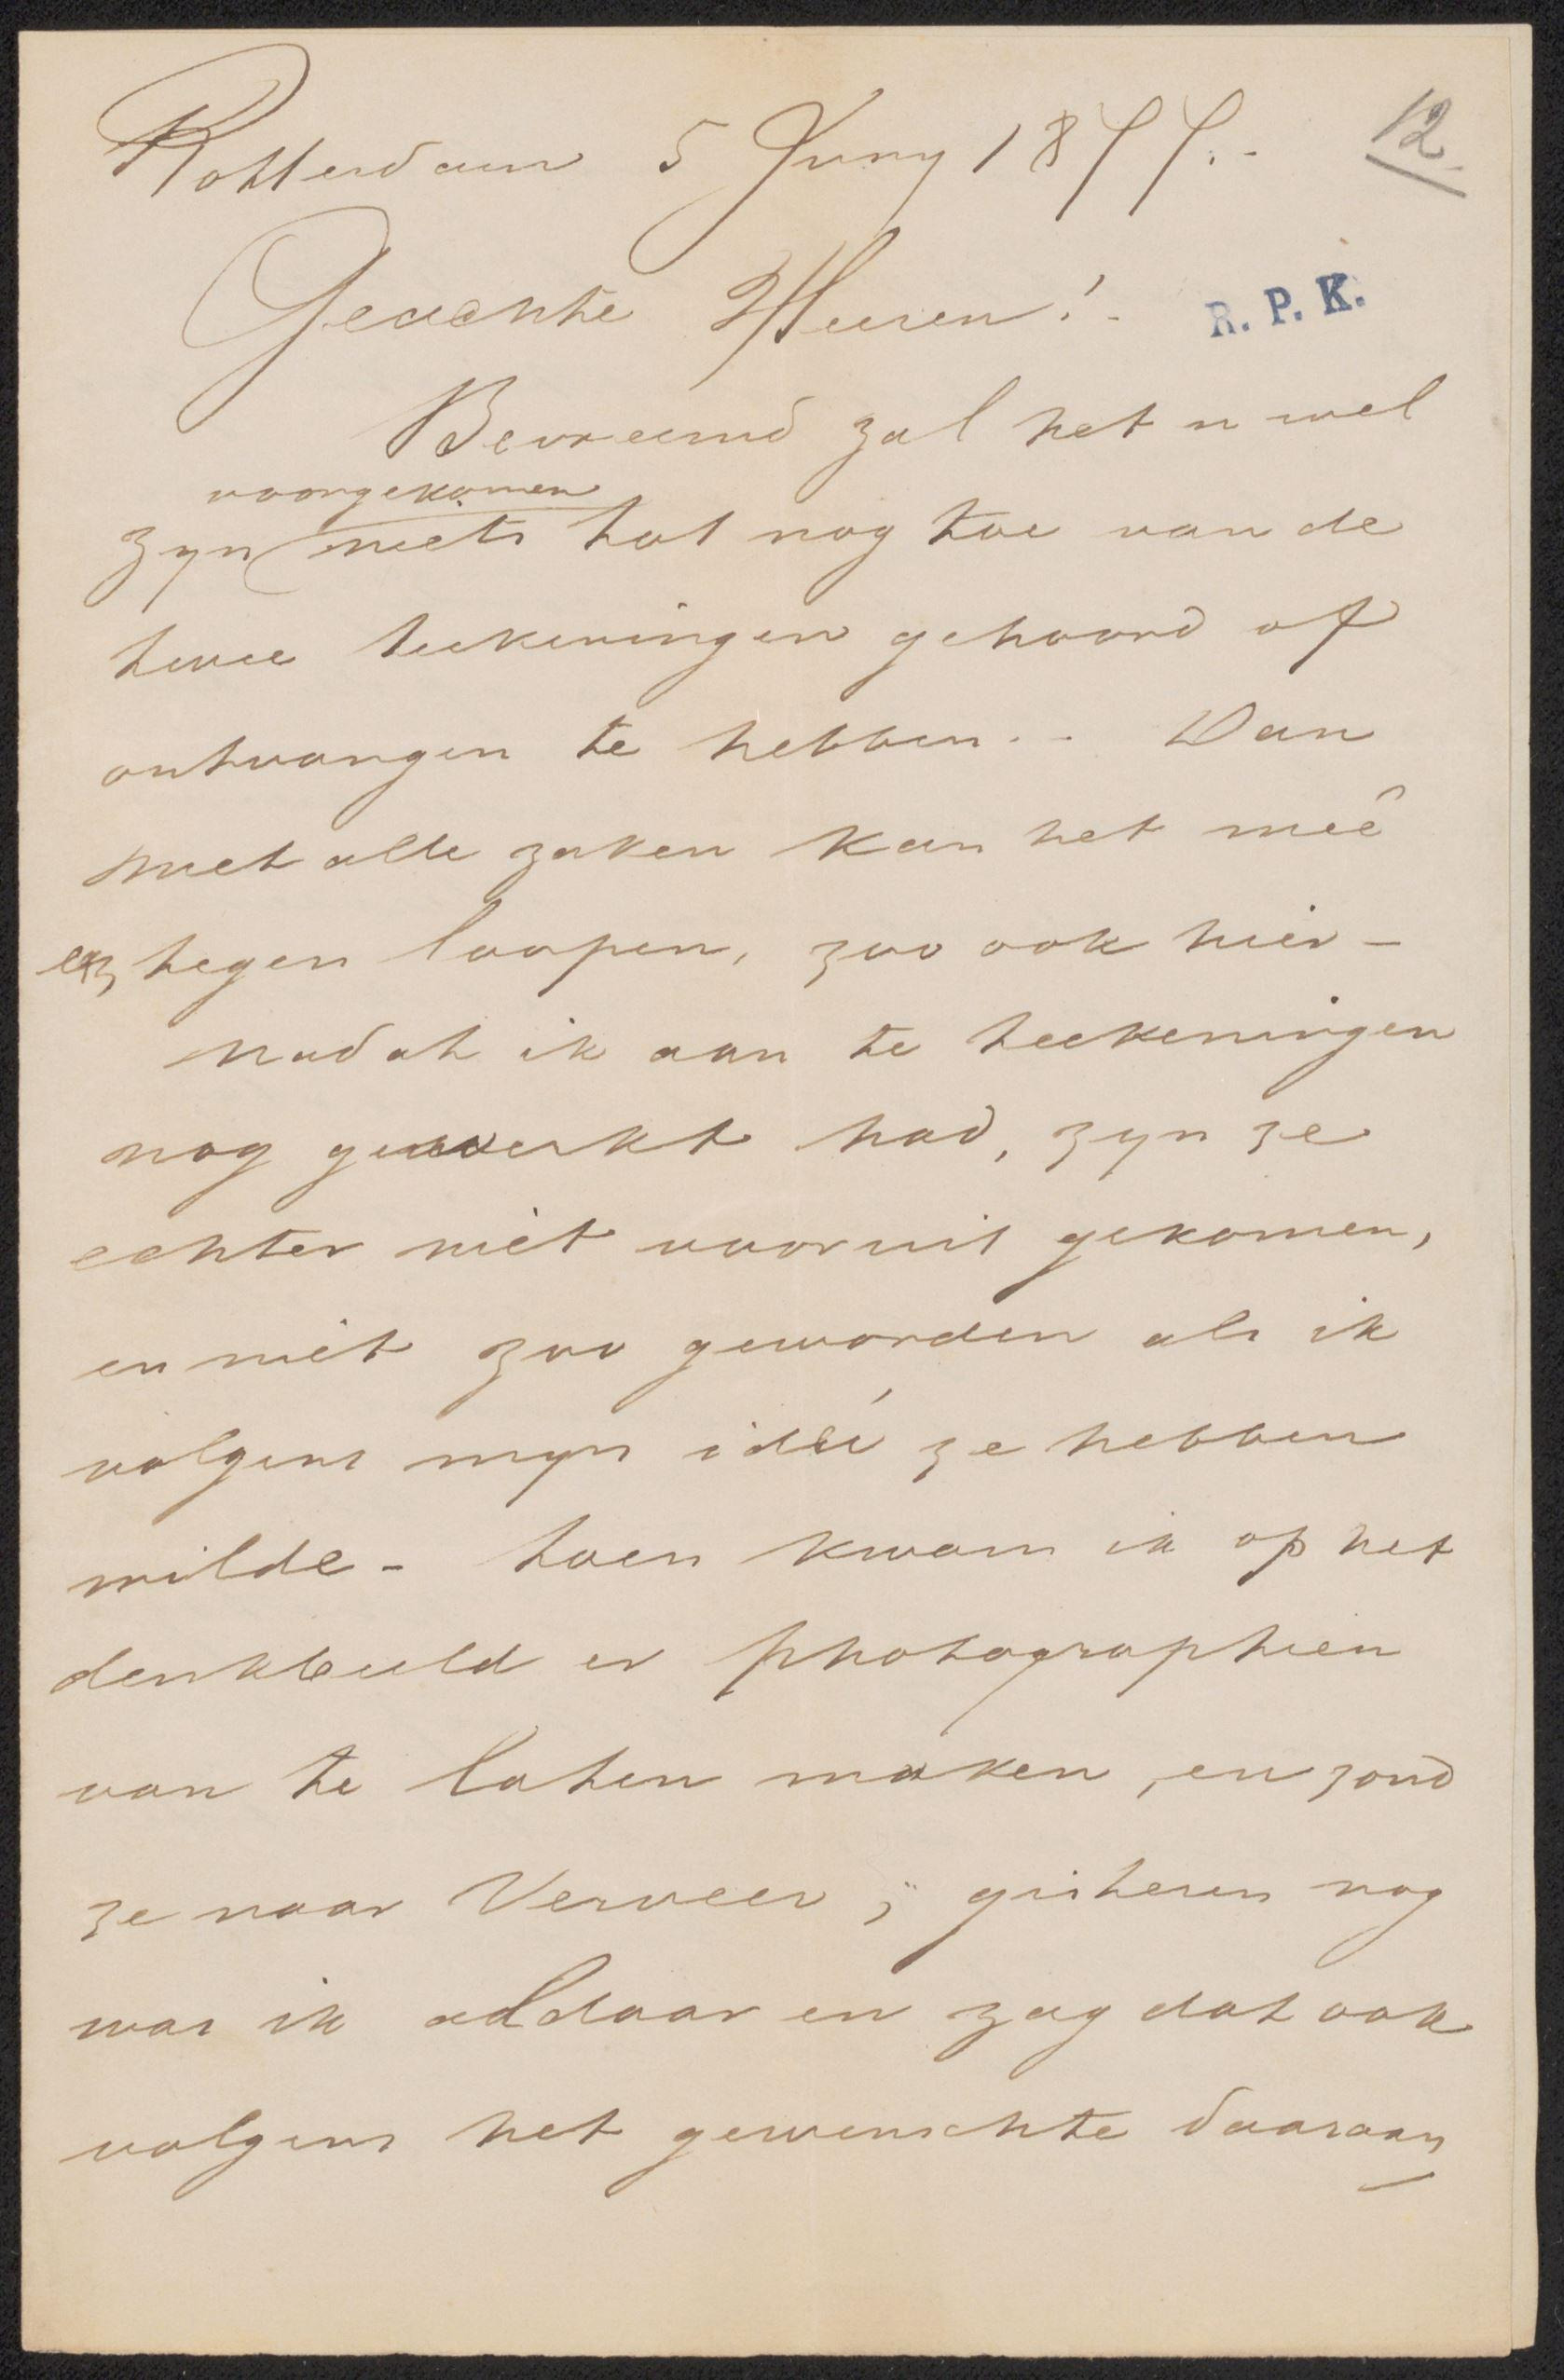 Rotterdam 5 Juny 1877.-
12
Geachte Heeren!-
R. P. K.
Bevreemd zal het u wel
voorgekomen
zyn niets tot nog toe van de
twee teekeningen gehoord of
ontvangen te hebben.- Dan
met alle zaken kan het meê
en tegen loopen, zoo ook hier-
nadat ik aan te teekeningen
nog gewerkt had, zyn ze
echter niet vooruit gekomen,
en niet zoo geworden als ik
volgens myn idée ze hebben
wilde- toen kwam ik op het
denkbeeld er photographien
van te laten maken, en zond
ze naar Verveer; gisteren nog
was ik aldaar en zag dat ook
volgens het gewenschte daaraan